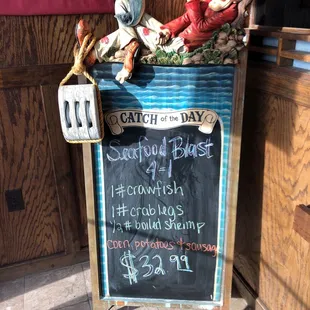 CATCH of the DAY
Seafood Blast
4=1
1#crawfish
1#crablegs
1/2#boiled shrimp
corn potatoes + sausage
$32.99